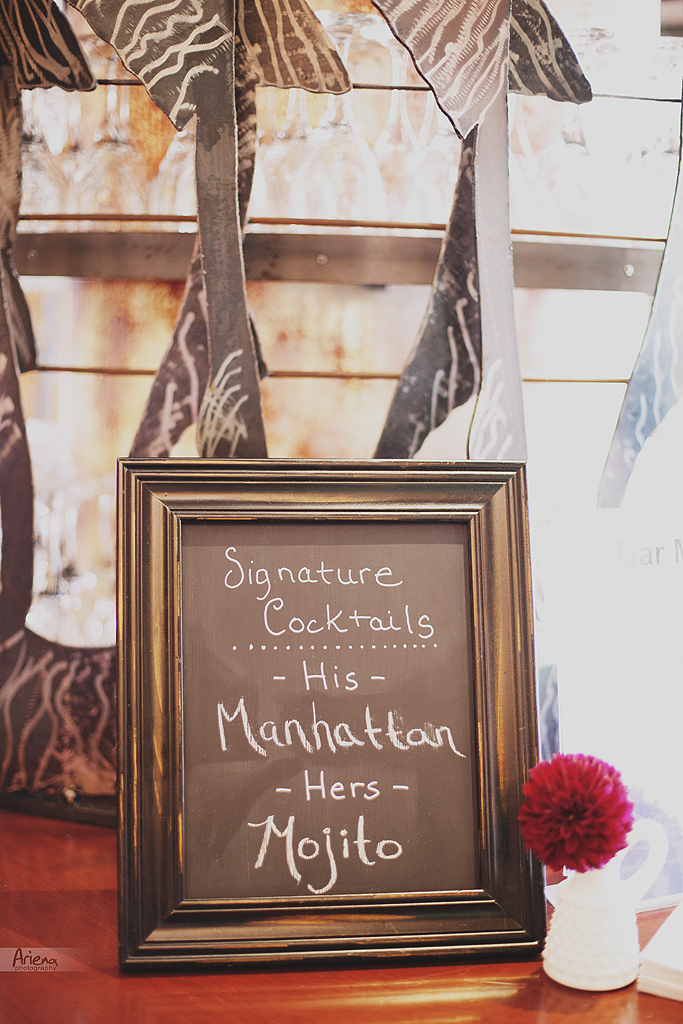 Signature
Cocktails
- His -
Manhattan
- Hers -
Mojito
Bar M
Ariena
photography